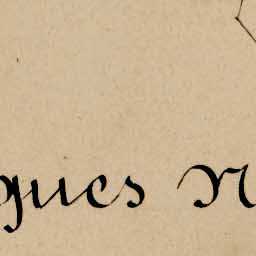 gues N